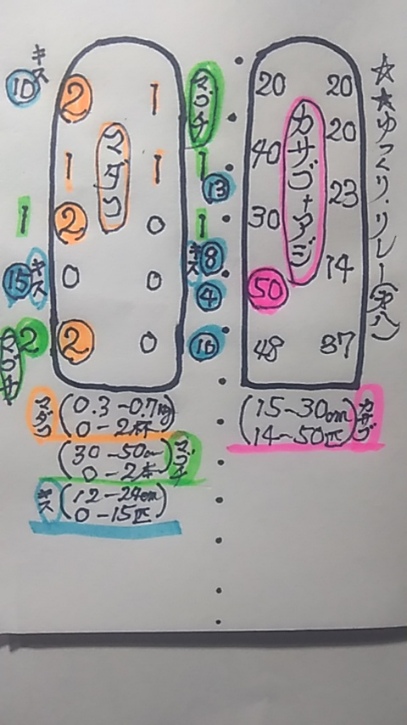 ☆☆ゆっくり・リレー(木八)
カサゴ+アジ
20 20
40 20
30 23
50 14
48 37
カサゴ
(15~30cm)
14~50匹
マダコ
2 1
1 1
2 0
0 0
2 0
キス
10
1
15 キス
2 マゴチ
マゴチ
1
13
1
キス 8
4
10
マダコ (0.3-0.7kg)
0-2杯
(30-50cm) マゴチ
0-2本
キス (12-24cm)
0-15匹